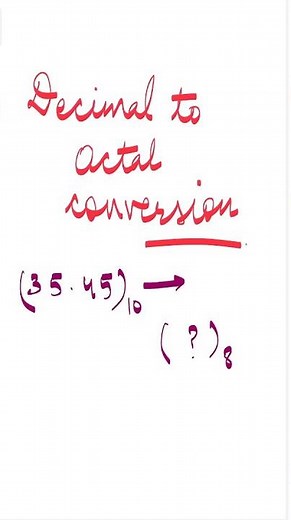 Decimal to
Octal
conversion
(35.45)₁₀ →
( ? )₈